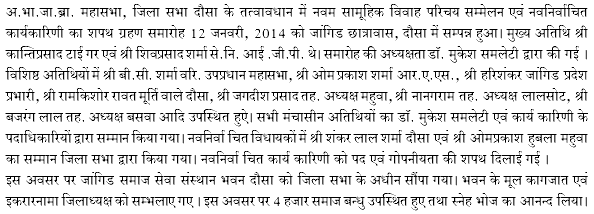 अ.भा.जा.ब्रा. महासभा, जिला सभा दौसा के तत्वावधान में नवम सामूहिक विवाह परिचय सम्मेलन एवं नवनिर्वाचित
कार्यकारिणी का शपथ ग्रहण समारोह 12 जनवरी, 2014 को जांगिड छात्रावास, दौसा में सम्पन्न हुआ। मुख्य अतिथि श्री
कान्तिप्रसाद टाई गर एवं श्री शिवप्रसाद शर्मा से.नि. आई .जी.पी. थे। समारोह की अध्यक्षता डॉ. मुकेश समलेटी द्वारा की गई ।
विशिष्ठ अतिथियों में श्री बी.सी. शर्मा वरि. उपप्रधान महासभा, श्री ओम प्रकाश शर्मा आर.ए.एस., श्री हरिशंकर जांगिड प्रदेश
प्रभारी, श्री रामकिशोर रावत मूर्ति वाले दौसा, श्री जगदीश प्रसाद तह. अध्यक्ष महुवा, श्री नानगराम तह. अध्यक्ष लालसोट, श्री
बजरंग लाल तह. अध्यक्ष बसवा आदि उपस्थित हुऐ। सभी मंचासीन अतिथियों का डॉ. मुकेश समलेटी एवं कार्य कारिणी के
पदाधिकारियों द्वारा सम्मान किया गया। नवनिर्वा चित विधायकों में श्री शंकर लाल शर्मा दौसा एवं श्री ओमप्रकाश हुबला महुवा
का सम्मान जिला सभा द्वारा किया गया। नवनिर्वा चित कार्य कारिणी को पद एवं गोपनीयता की शपथ दिलाई गई ।
इस अवसर पर जांगिड समाज सेवा संस्थान भवन दौसा को जिला सभा के अधीन सौंपा गया। भवन के मूल कागजात एवं
इकरारनामा जिलाध्यक्ष को सम्भलाए गए । इस अवसर पर 4 हजार समाज बन्धु उपस्थित हुए तथा स्नेह भोज का आनन्द लिया।